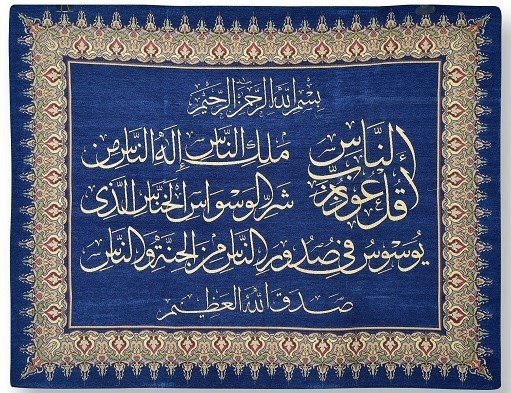 بسم الله الرحمن الرحيم
قل أعوذ برب الناس ملك الناس إله الناس من
شر الوسواس الخناس الذى
يوسوس فى صدور الناس من الجنة والناس
صدق الله العظيم